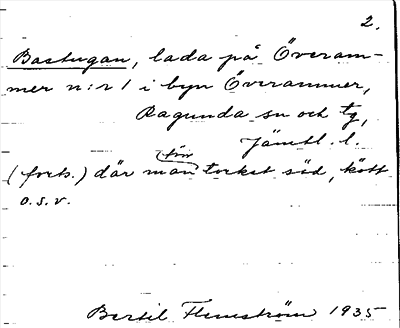 2.
Bastugan, lada på Överam-
mer n:r 1 i byn Överammer,
Ragunda sn och tg,
Jämtl. l.
(forts.) där man förr torkat säd, kött
o.s.v.
Bertil Flemström 1935